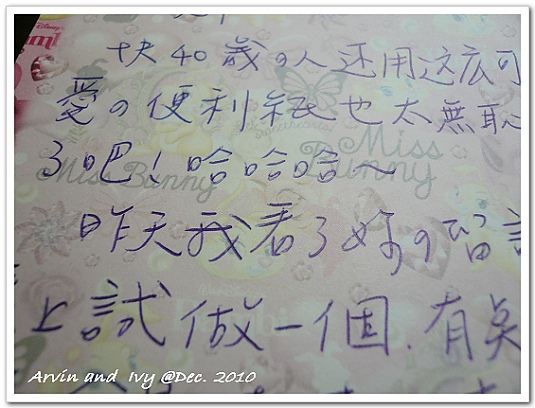 快40歲の人还用这麼可
愛の便利紙也太無恥
了吧！哈哈哈～
Miss Bunny
Miss Bunny
昨天我看了妳の留言
上試做一個．有臭
Arvin and Ivy @Dec. 2010